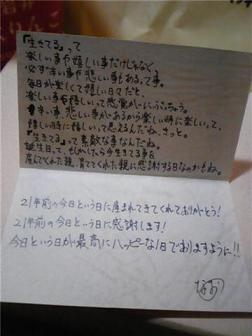 「生きてる」って
楽しい事や嬉しい事だけじゃなく、
必ず辛い事や悲しい事もある。って事。
毎日が楽しくて嬉しい日々だと、
楽しい事や嬉しいって感覚がにぶっちゃう。
辛い事、悲しい事があるから楽しい時に楽しいって、
嬉しい時に嬉しいって思えるんだね、きっと。
「生きてる」って素敵な事なんだね。
誕生日って、もしかしたら今生きてる事を
産んでくれた親、育ててくれた親に感謝する日なのかもね。
21年前の今日という日に産まれてきてくれてありがとう!
21年前の今日という日に感謝します!
今日という日が最高にハッピーな1日でありますように!!